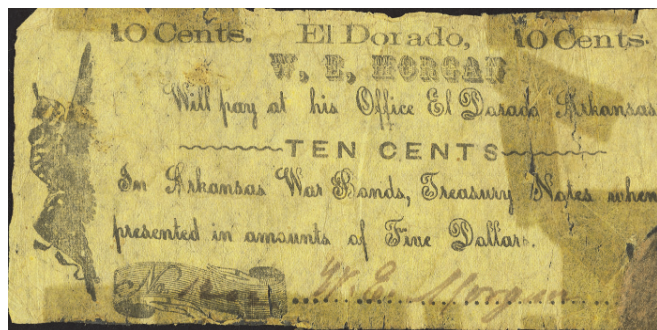 10 Cents. El Dorado, 10 Cents.
W. E. MORGAN
Will pay at his Office El Dorado Arkansas
TEN CENTS
In Arkansas War Bonds, Treasury Notes when
presented in amounts of Five Dollars.
No W. E. Morgan